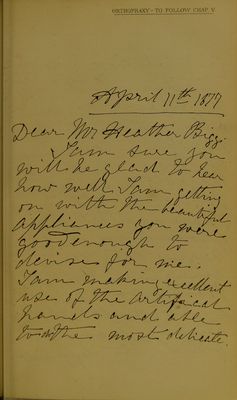 ORTHOPRAXY - TO FOLLOW CHAP V.
April 11th 1877
Dear Mr Heather Bigg
I am sure you
will be glad to hear
how well I am getting
on with the beautiful
appliances you were
good enough to
devise for me.
I am making excellent
use of the artificial
hands and able
to do the most delicate